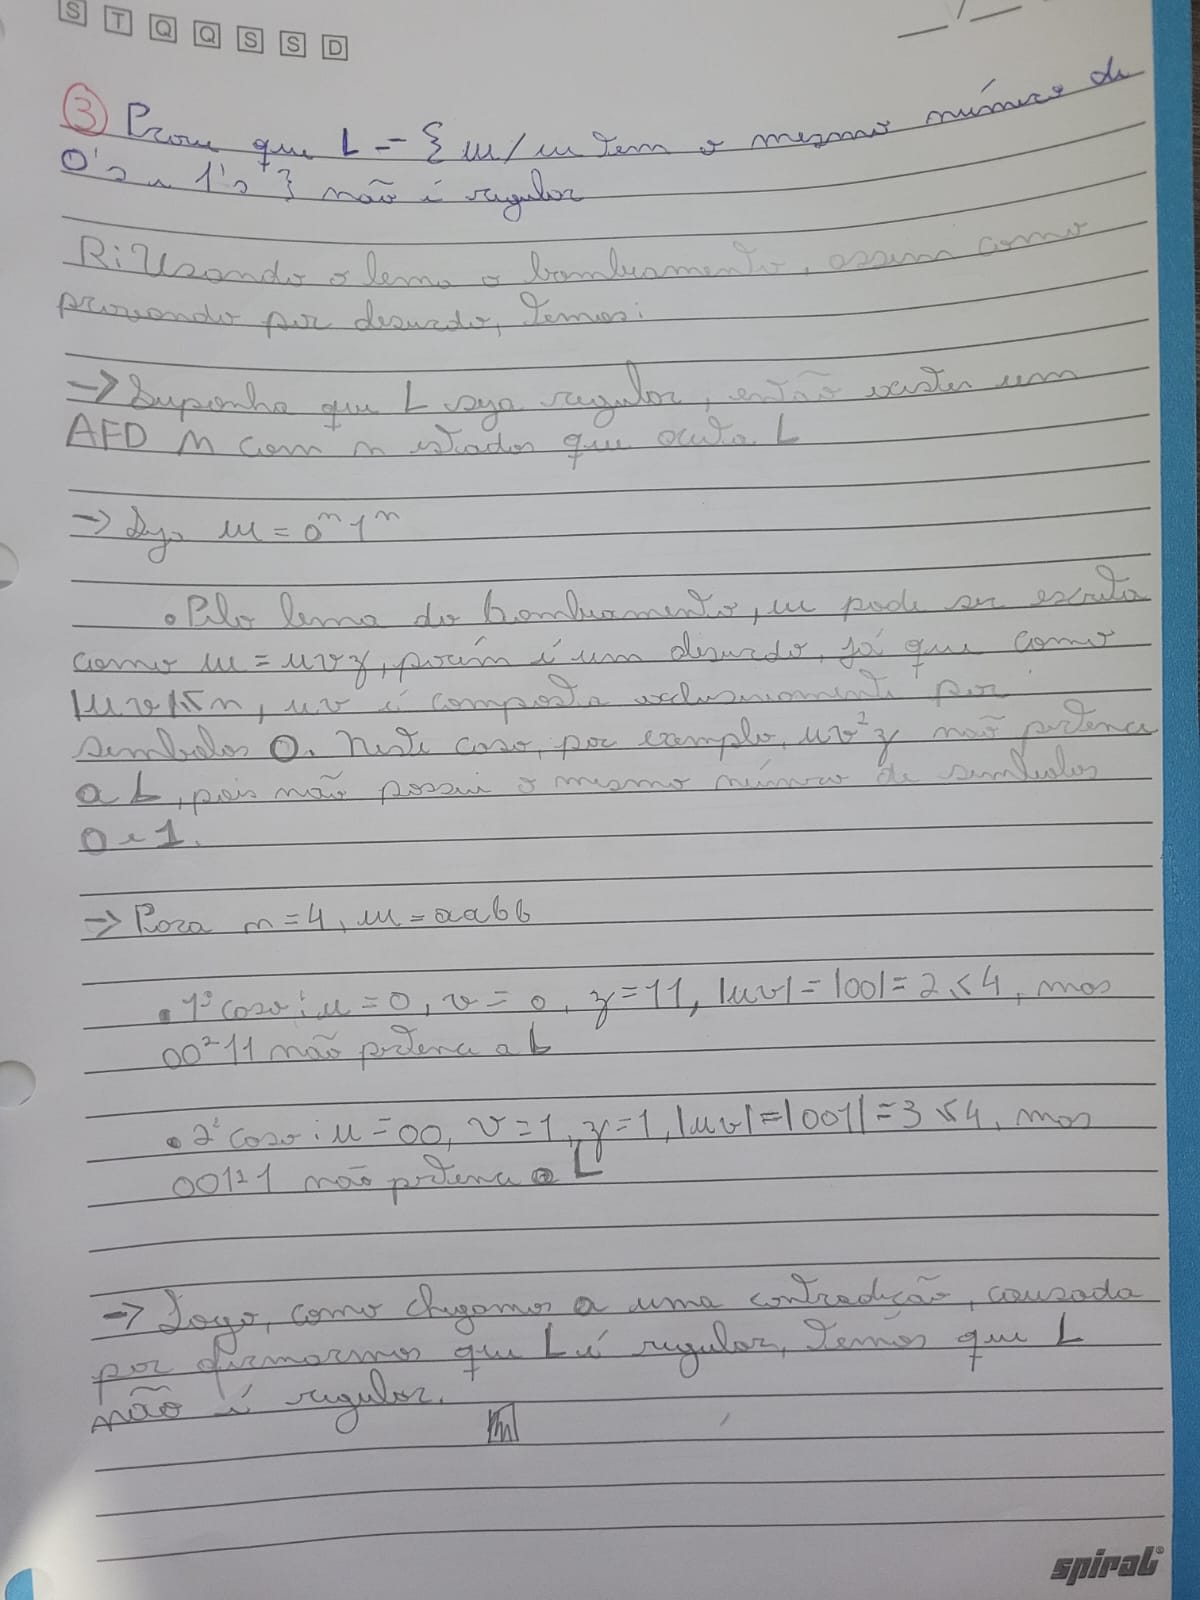 S T Q Q S S D
__/__
③ Prove que L = { w / w tem o mesmo número de
0's e 1's } não é regular
R: Usando o lema o bombeamento, assim como
provando por absurdo, temos:
→ Suponha que L seja regular, então existe um
AFD M com n estados que aceita L
→ Seja w = 0ⁿ1ⁿ
• Pelo lema do bombeamento, w pode ser escrita
como w = uvz, porém é um absurdo, já que como
|uv| ≤ n, uv é composta exclusivamente por
símbolos 0. Neste caso, por exemplo, uv²z não pertence
a L, pois não possui o mesmo número de símbolos
0 e 1.
→ Para n = 4, w = aabb
• 1º caso: u = 0, v = 0, z = 11, |uv| = |00| = 2 ≤ 4, mas
00²11 não pertence a L
• 2º caso: u = 00, v = 1, z = 1, |uv| = |001| = 3 ≤ 4, mas
001²1 não pertence a L
→ Logo, como chegamos a uma contradição, causada
por afirmarmos que L é regular, temos que L
não é regular.
spiral®